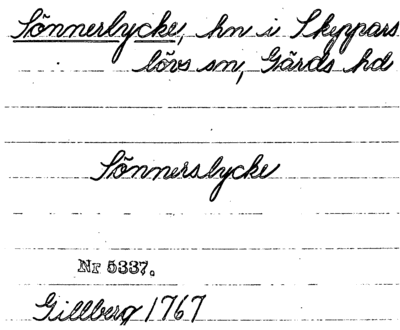 Sönnerlycke, hn i Skeppars
lövs sn, Gärds hd
Sönnerslycke
Nr 5337.
Gillberg 1767